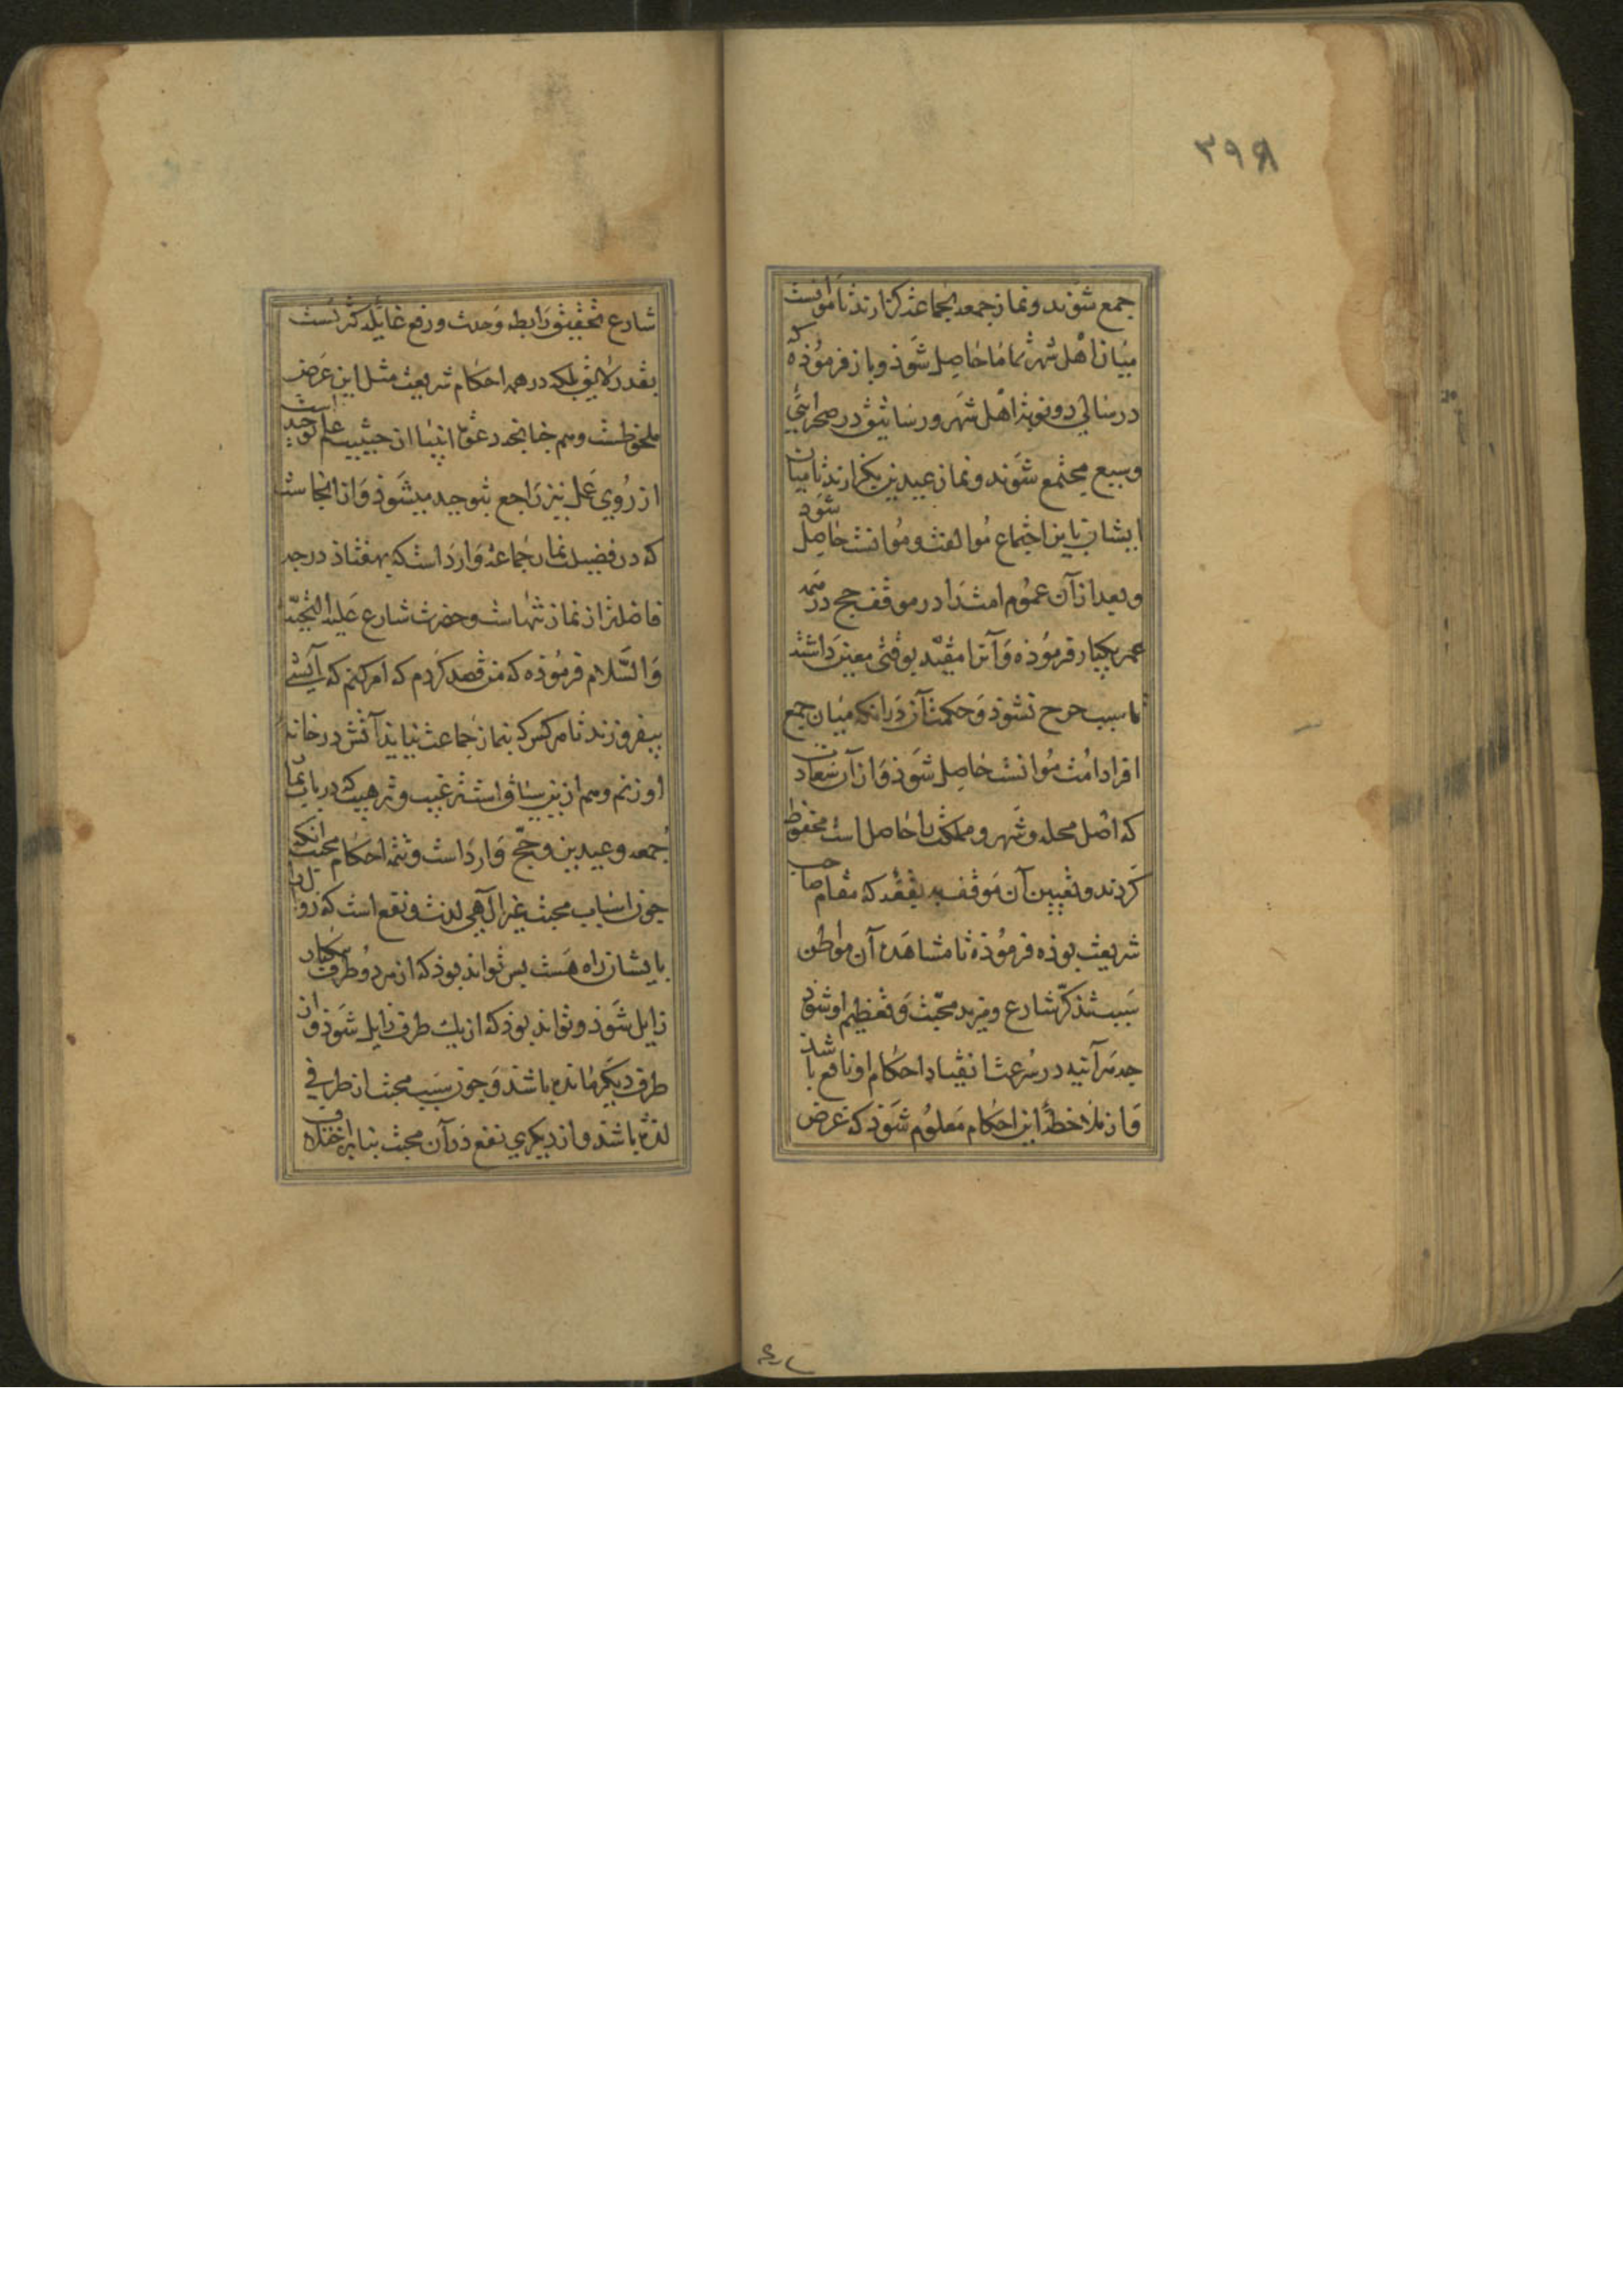 ۳۹۸
جمع شوند و نماز جمعه بجماعة گزارند تا موانست
میان اهل شهر تماما حاصل شوذ و باز فرموذه که
در سالی دو نوبة اهل شهر و رساتیق در صحرایی
وسیع مجتمع شوند و نماز عیدین بگزارند تا میان
ایشان باین اجتماع موالفت و موانست حاصل شود
و بعد از آن عموم امت را در موقف حج در همه
عمر یکبار فرموذه و آنرا مقید بوقتی معین داشتند
تا سبب حرج نشوذ و حکمت آن در آنکه میان جمع
افراد امت موانست حاصل شوذ و از آن سعادت
که اهل محله و شهر و مملکت را حاصل است محفوظ
کردند و تعیین آن موقف به بقعه که مقام صاحب
شریعت بوذه فرموذه تا مشاهده آن مواطن
سبب تذکر شارع و مزید محبت و تعظیم او شود
چه هرآینه در سرعت انقیاد احکام او نافع باشذ
و از ملاحظه این احکام معلوم شوذ که غرض
شارع تحقیق رابطه وحدت و رفع غایله کثرتست
بقدر لایق بلکه در همه احکام شریعت مثل این غرض
ملحوظست و هم چنانچه دعوة انبیا از حیثیت علم توحید است
از روی عمل نیز راجع بتوحید میشوذ و از اینجاست
که در فضیلت نماز جماعة وارد است که بهفتاذ درجه
فاضلتر از نماز تنهاست و حضرت شارع علیه التحیة
والسلام فرموذه که من قصد کردم که امر کنم که آتشی
بیفروزند تا هرکس که بنماز جماعت نیایذ آتش در خانه
او زنم و هم ازین سیاق است ترغیب و ترهیب که در باب نماز
جمعه و عیدین و حج وارد است و تتمه احکام محبت آنکه
چون اسباب محبت غیر الهی لذت و نفع است که زوال را
بایشان راه هست پس تواند بوذ که از هر دو طرف بیکبار
زایل شوذ و تواند بوذ که از یك طرف زایل شوذ و از
طرف دیگر مانده باشند و چون سبب محبت از طرفی
لذة باشذ و از دیگری نفع در آن محبت بنابر اختلاف